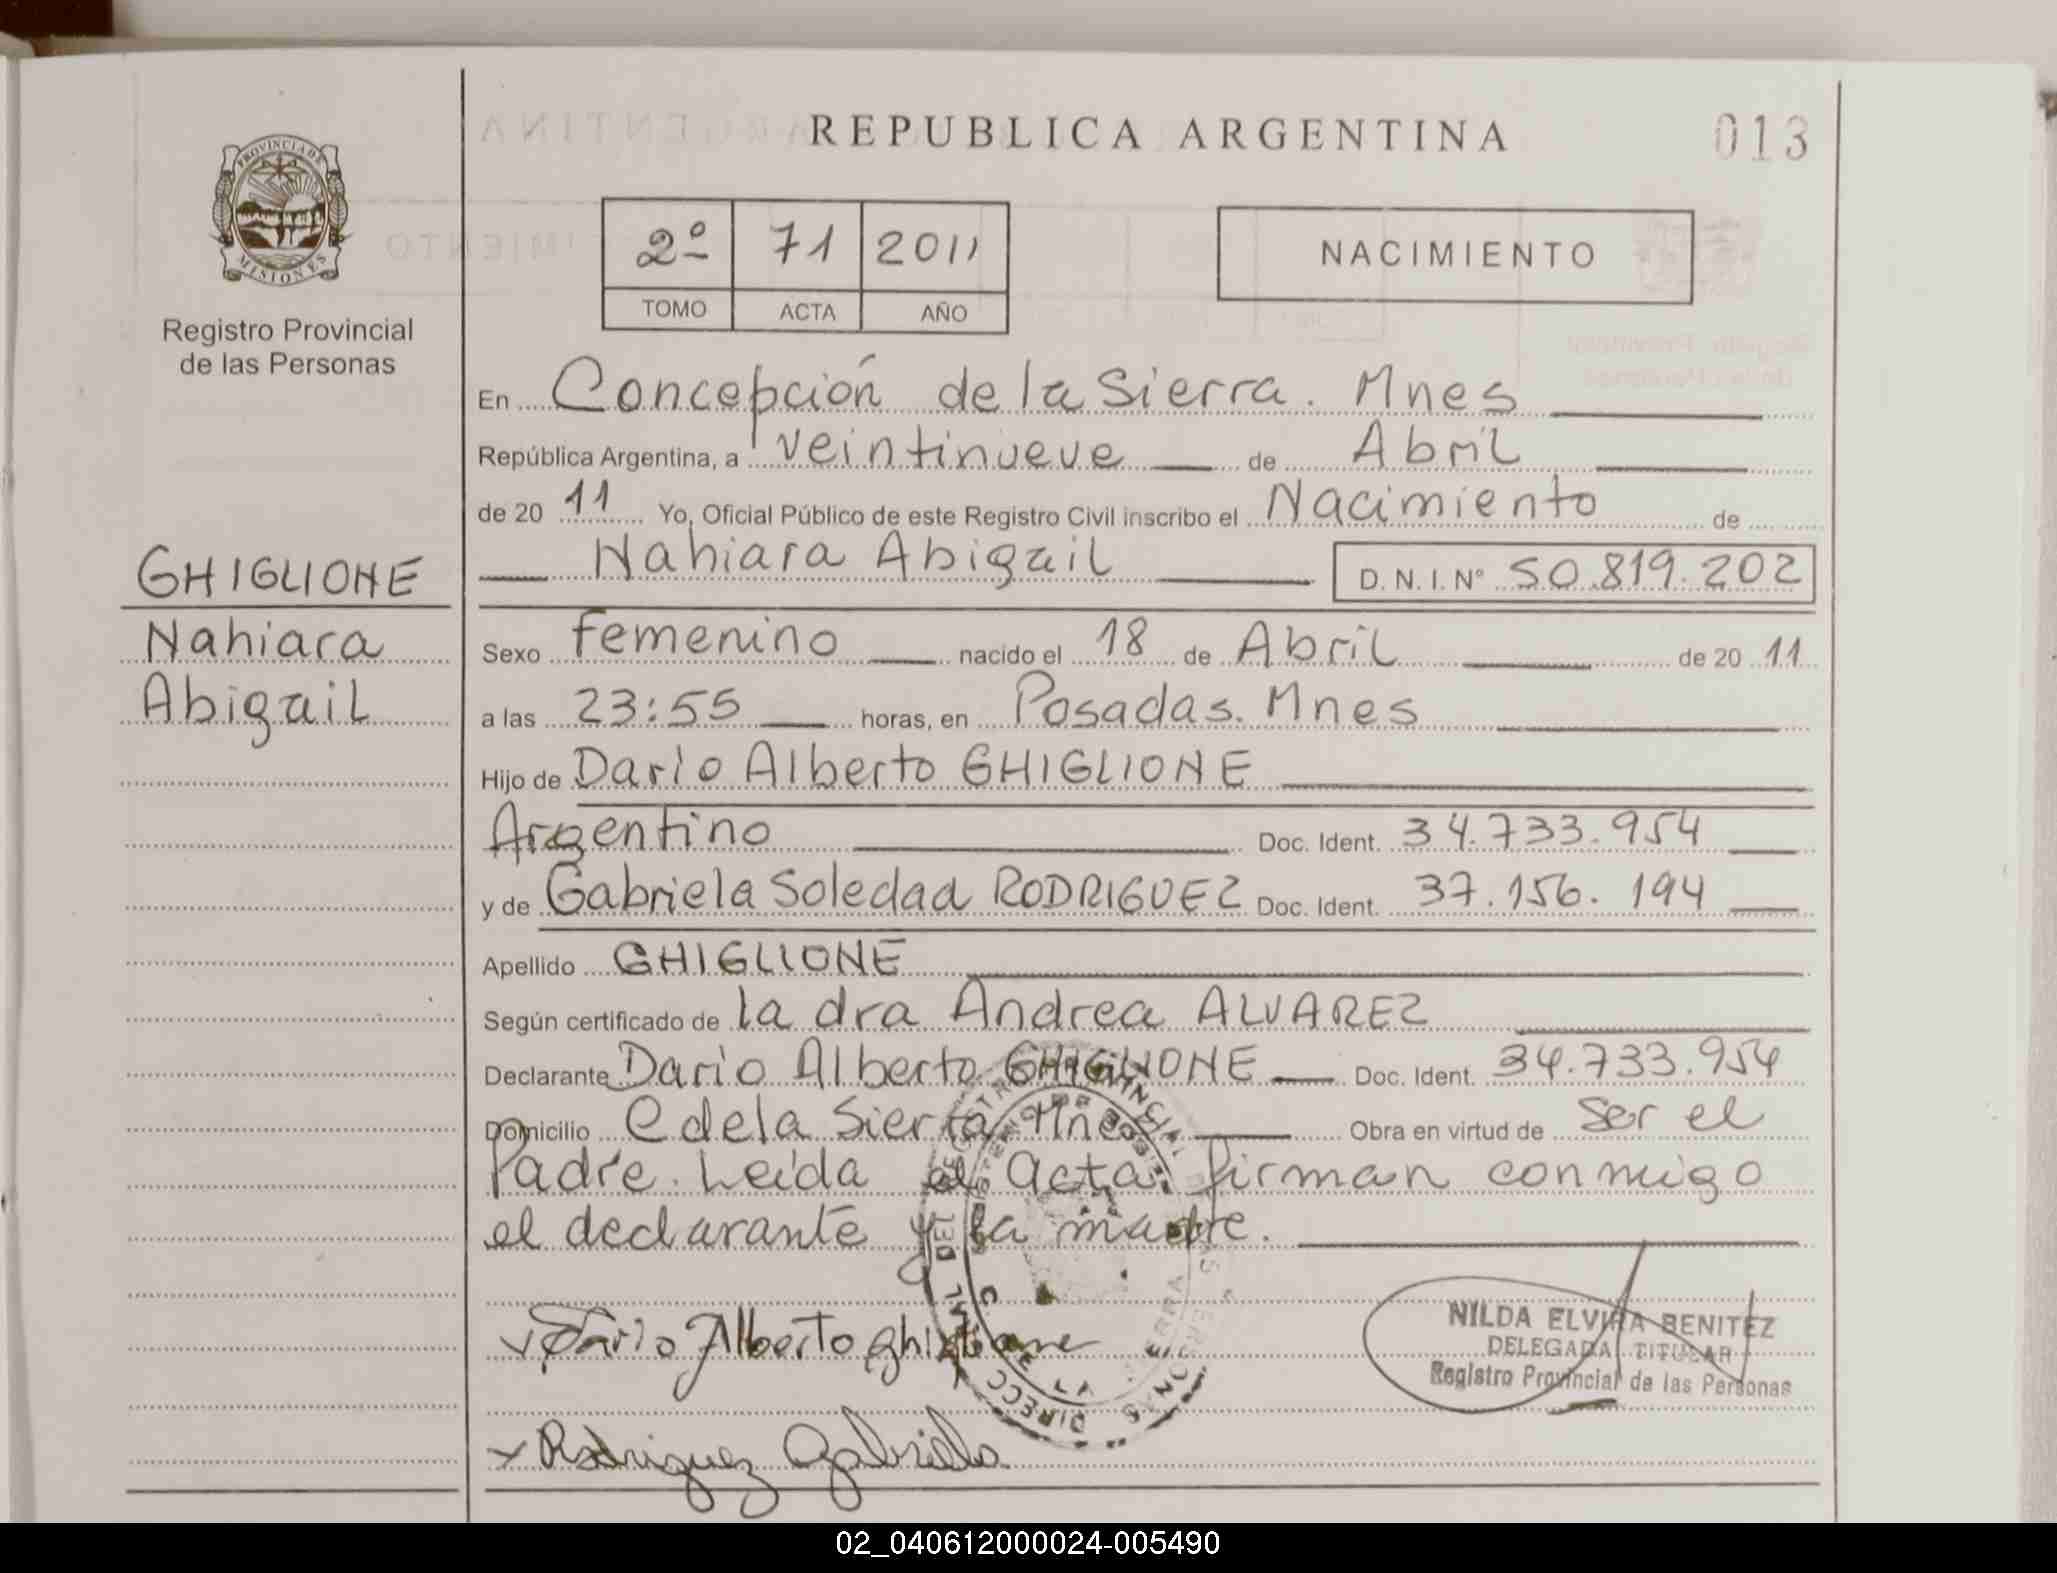 REPUBLICA ARGENTINA
013
PROVINCIA DE
MISIONES
Registro Provincial
de las Personas
2º 71 2011
TOMO ACTA AÑO
NACIMIENTO
En Concepción de la Sierra. Mnes
República Argentina, a veintinueve de Abril
de 20 11 Yo, Oficial Público de este Registro Civil inscribo el Nacimiento de
Nahiara Abigail D.N.I. Nº 50.819.202
GHIGLIONE
Nahiara
Abigail
Sexo femenino nacido el 18 de Abril de 20 11
a las 23:55 horas, en Posadas. Mnes
Hijo de Dario Alberto GHIGLIONE
Argentino Doc. Ident. 34.733.954
y de Gabriela Soledad RODRIGUEZ Doc. Ident. 37.156.194
Apellido GHIGLIONE
Según certificado de la dra Andrea ALVAREZ
Declarante Dario Alberto GHIGLIONE Doc. Ident. 34.733.954
Domicilio C de la Sierra Mnes Obra en virtud de ser el
Padre. Leída el acta. firman conmigo
el declarante y la madre.
Dario Alberto Ghiglione
NILDA ELVIRA BENITEZ
DELEGADA TITULAR
Registro Provincial de las Personas
x Rodriguez Gabriela
02_040612000024-005490